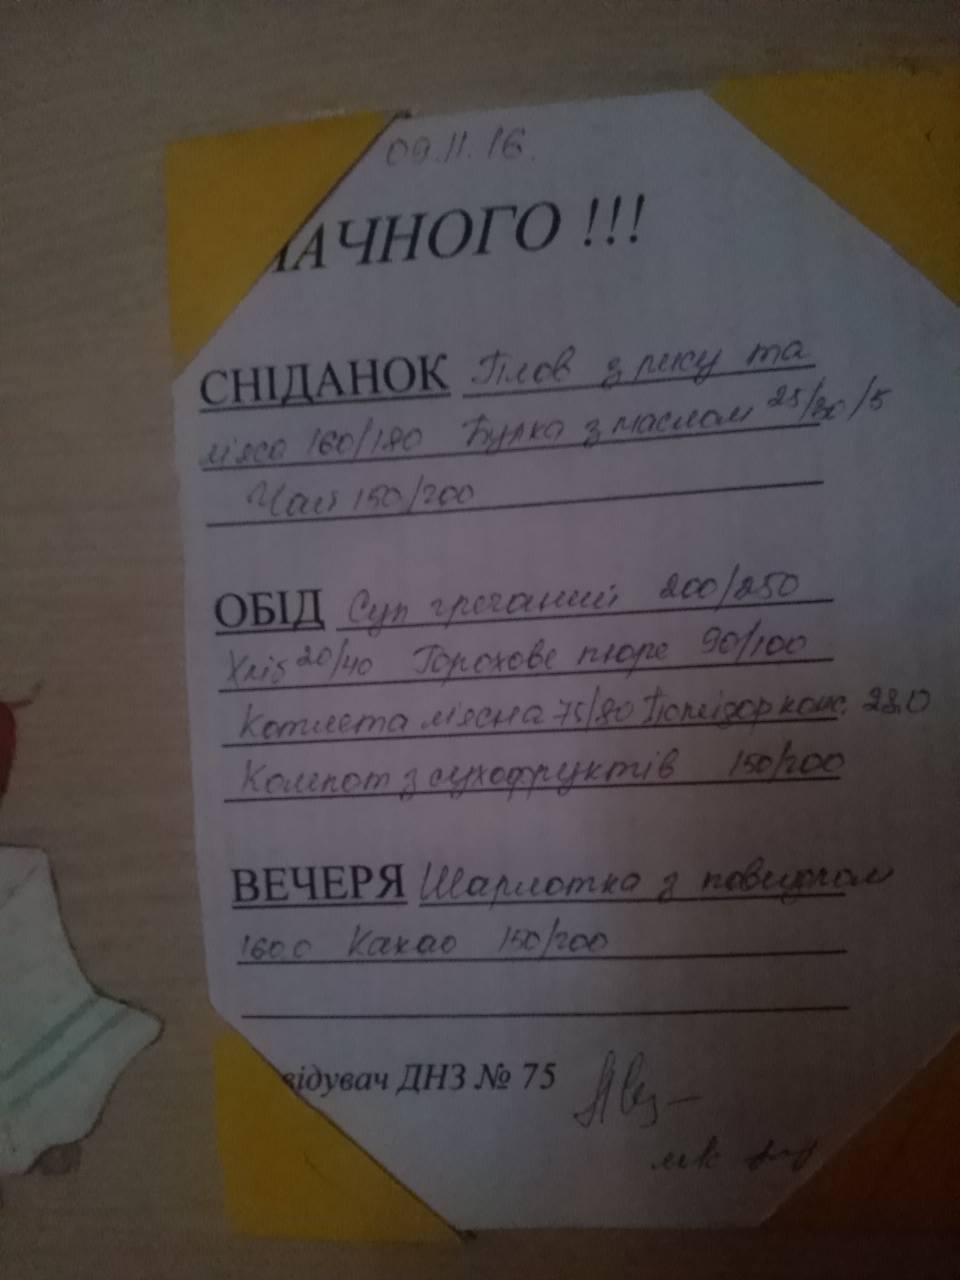 09.11.16.
АЧНОГО !!!
СНІДАНОК Плов з рису та
м'ясо 160/180 Булка з маслом 25/30/5
Чай 150/200
ОБІД Суп гречаний 200/250
Хліб 20/40 Горохове пюре 90/100
Котлета м'ясна 75/80 Помідор конс. 28,0
Компот з сухофруктів 150/200
ВЕЧЕРЯ Шарлотка з повидлом
160,0 Какао 150/200
відувач ДНЗ № 75